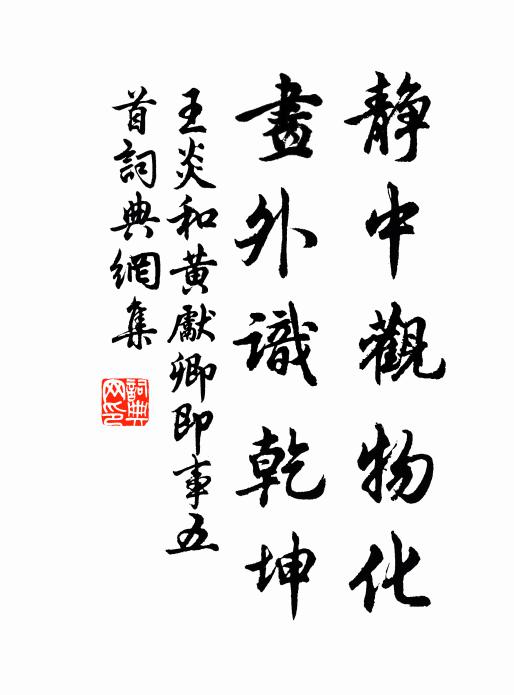 静中觀物化
畫外識乾坤
王炎和黃獻卿即事五
首詞典網集
詞典网印